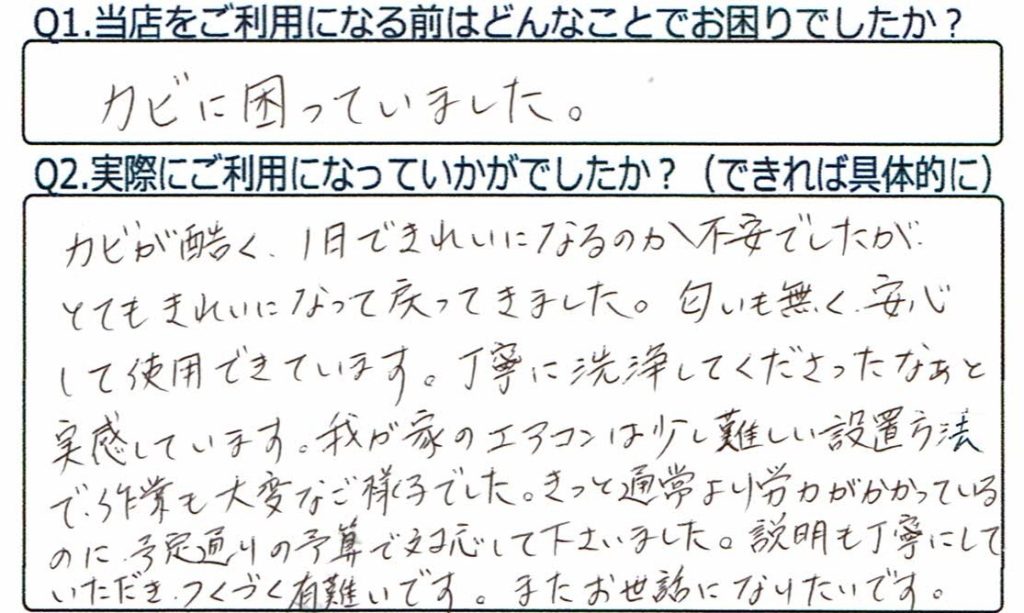 Q1.当店をご利用になる前はどんなことでお困りでしたか？
カビに困っていました。
Q2.実際にご利用になっていかがでしたか？（できれば具体的に）
カビが酷く、1日できれいになるのか不安でしたが、
とてもきれいになって戻ってきました。匂いも無く、安心
して使用できています。丁寧に洗浄してくださったなぁと
実感しています。我が家のエアコンは少し難しい設置方法
で、作業も大変なご様子でした。きっと通常より労力がかかっている
のに、予定通りの予算で対応して下さいました。説明も丁寧にして
いただき、つくづく有難いです。またお世話になりたいです。